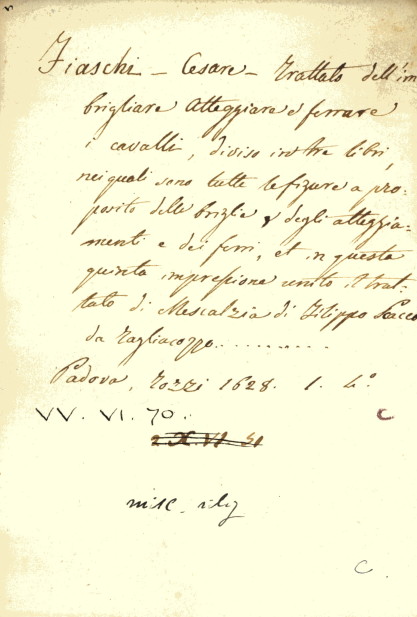 Fiaschi - Cesare - Trattato dell'im
brigliare atteggiare e ferrare
i cavalli, diviso in tre libri,
nei quali sono tutte le figure a pro-
posito delle briglie, degli atteggia-
menti e dei ferri, et in questa
quinta impressione unito il trat-
tato di Mescalzia di Filippo Scacco
da Tagliacozzo..........
Padova, Tozzi 1628. 1. 4°.
VV. VI. 70.
C
misc. rileg
C.